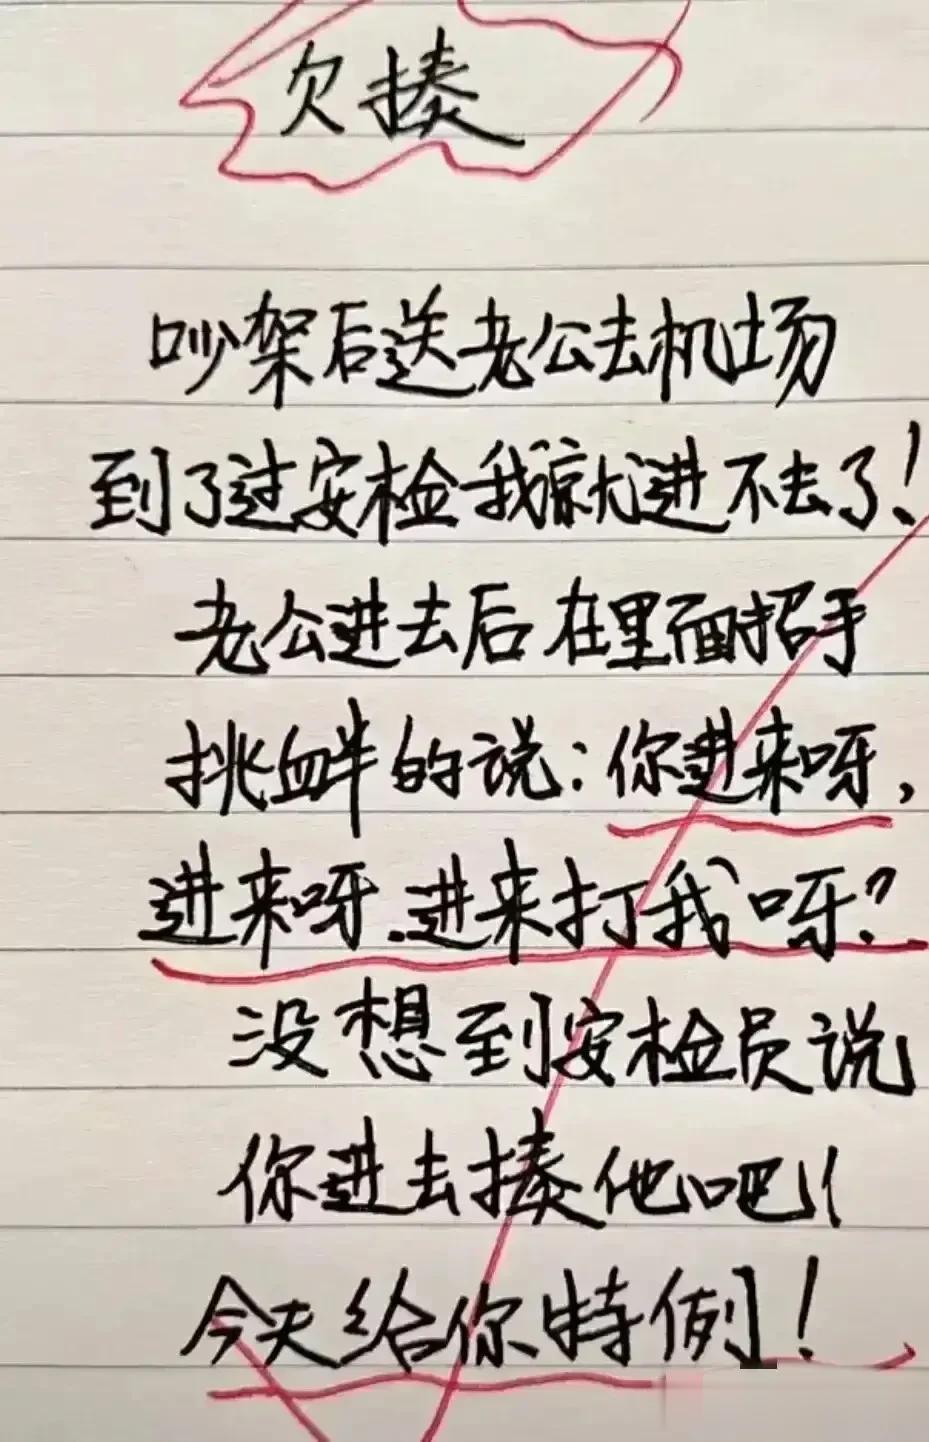 欠揍
吵架后送老公去机场
到了过安检我就进不去了!
老公进去后在里面招手
挑衅的说:你进来呀,
进来呀.进来打我呀?
没想到安检员说
你进去揍他吧!(
今天给你特例!